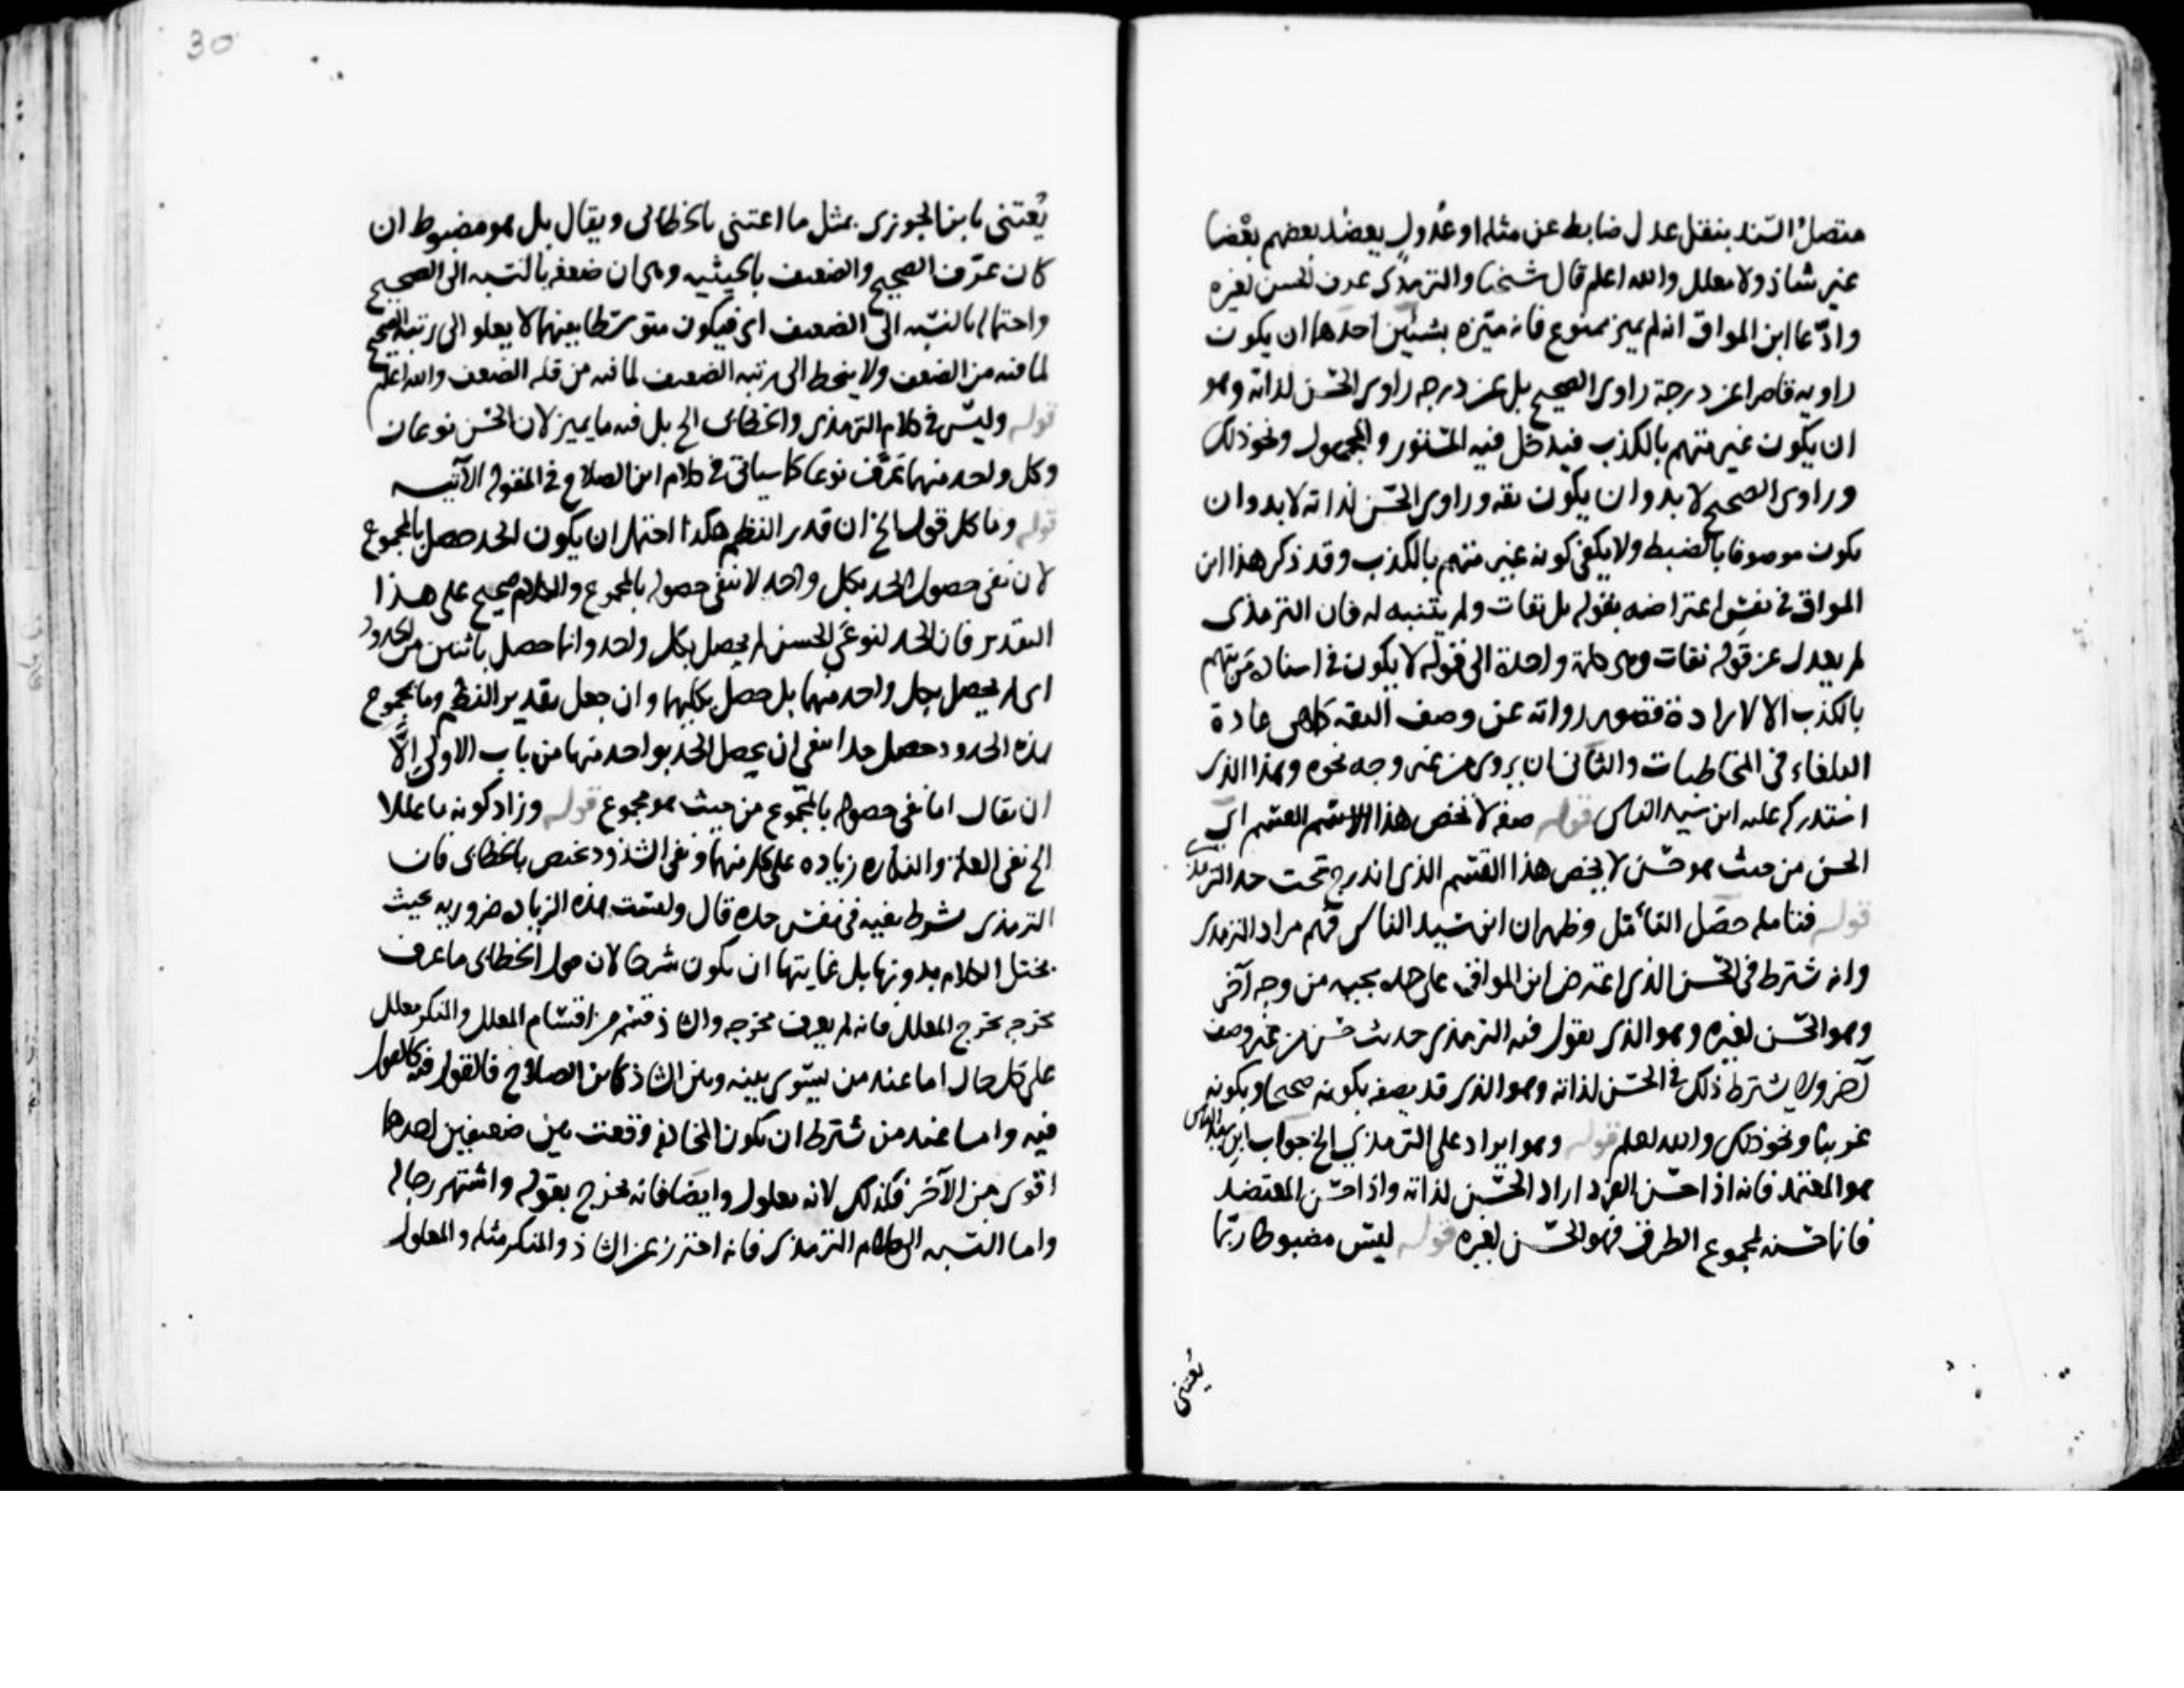 متصل السند بنقل عدل ضابط عن مثله او عدول يعضد بعضهم بعضا
غير شاذ ولا معلل والله اعلم قال شيخنا والترمذي عرف الحسن لغيره
وادعا ابن المواق انه لم يميز ممنوع فانه ميزه بشيئين احدهما ان يكون
راويه قاصرا عن درجة راوي الصحيح بل عن درجه راوي الحسن لذاته وهو
ان يكون غير متهم بالكذب فيدخل فيه المستور والمجهول ونحو ذلك
وراوي الصحيح لا بد وان يكون ثقه وراوي الحسن لذاته لا بد وان
يكون موصوفا بالضبط ولا يكفي كونه غير متهم بالكذب وقد ذكر هذا ابن
المواق في نفس اعتراضه بقوله بل ثقات ولم يتنبه له فان الترمذي
لم يعدل عن قوله ثقات وهي كلمة واحدة الى قوله لا يكون في اسناده من يتهم
بالكذب الا لارادة قصور رواته عن وصف الثقه كما هي عادة
البلغاء في المخاطبات والثاني ان يروى من غير وجه نحوه وهذا الذي
استدركه عليه ابن سيد الناس قوله صفه لا تخص هذا القسم اي
الحسن من حيث هو حسن لا يخص هذا القسم الذي اندرج تحت حد الترمذي
قوله فتامله حصل التأمل وظهر ان ابن سيد الناس فهم مراد الترمذي
وانه شترط في الحسن الذي اعترض ابن المواق على حده بجيه من وجه آخر
وهو الحسن لغيره وهو الذي يقول فيه الترمذي حديث حسن من غير وصف
آخر ولا يشترط ذلك في الحسن لذاته وهو الذي قد يصفه بكونه صحيحا وبكونه
غريبا ونحو ذلك والله اعلم قوله وهو ايراد على الترمذي الخ جواب ابن سيد الناس
هو المعتمد فانه اذا حسن الفرد اراد الحسن لذاته واذا حسن المعتضد
فانما حسنه لمجموع الطرق فهو الحسن لغيره قوله ليس مضبوطا ربما
يعتنى
30
يعتنى بابن الجوزي بمثل ما اعتني بالخطابي ويقال بل هو مضبوط ان
كان عرف الصحيح والضعيف بالحيثيه وهي ان ضعفه بالنسبه الى الصحيح
واحتماله بالنسبه الى الضعيف اي فيكون متوسطا بينهما لا يعلو الى رتبة الصحيح
لما فيه من الضعف ولا ينحط الى رتبه الضعيف لما فيه من قله الضعف والله اعلم
قوله وليس في كلام الترمذي والخطابي الخ بل فيه ما يميز لان الحسن نوعان
وكل واحد منهما عرف نوعا كما سياتي في كلام ابن الصلاح في المقوله الآتيه
قوله وما بكل قوله الخ ان قدر النظم هكذا احتمل ان يكون الحد حصل بالمجموع
لان نفي حصول الحد بكل واحد لا ينفي حصوله بالمجموع والكلام صحيح على هذا
التقدير فان الحد لنوعي الحسن لم يحصل بكل واحد وانما حصل باثنين من الحدود
اي لم يحصل بكل واحد منهما بل حصل بكليهما وان جعل تقدير النظم وما بمجموع
هذه الحدود حصل حد انتفى ان يحصل الحد بواحد منها من باب الاولى الا
ان يقال انما نفى حصوله بالمجموع من حيث هو مجموع قوله وزاد كونه ما عللا
الخ نفي العلة والنكاره زياده على كل منهما ونفي الشذوذ يختص بالخطابي فان
الترمذي شرط نفيه في نفس حده قال وليست هذه الزياده ضروريه بحيث
يختل الكلام بدونها بل غايتها ان يكون شرحا لان قول الخطابي ما عرف
مخرجه يخرج المعلل فانه لم يعرف مخرجه والشاذ قسم من اقسام المعلل والمنكر معلل
على كل حال اما عند من يسوي بينه وبين الشاذ كابن الصلاح فالقول فيه كالقول
فيه واما عند من شترط ان يكون المخالفه وقعت بين ضعيفين احدهما
اقوى من الآخر فكذلك لانه معلول وايضا فانه يخرج بقوله واشتهر رجاله
واما النسبه الى كلام الترمذي فانه احترز عن الشاذ والمنكر مثله والمعلول